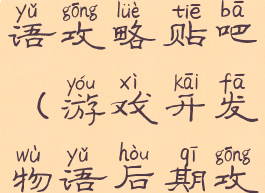 yǔ gōng lüè tiē bā
语攻略贴吧
yóu xì kāi fā
（游戏开发
wù yǔ hòu qī gōng
物语后期攻